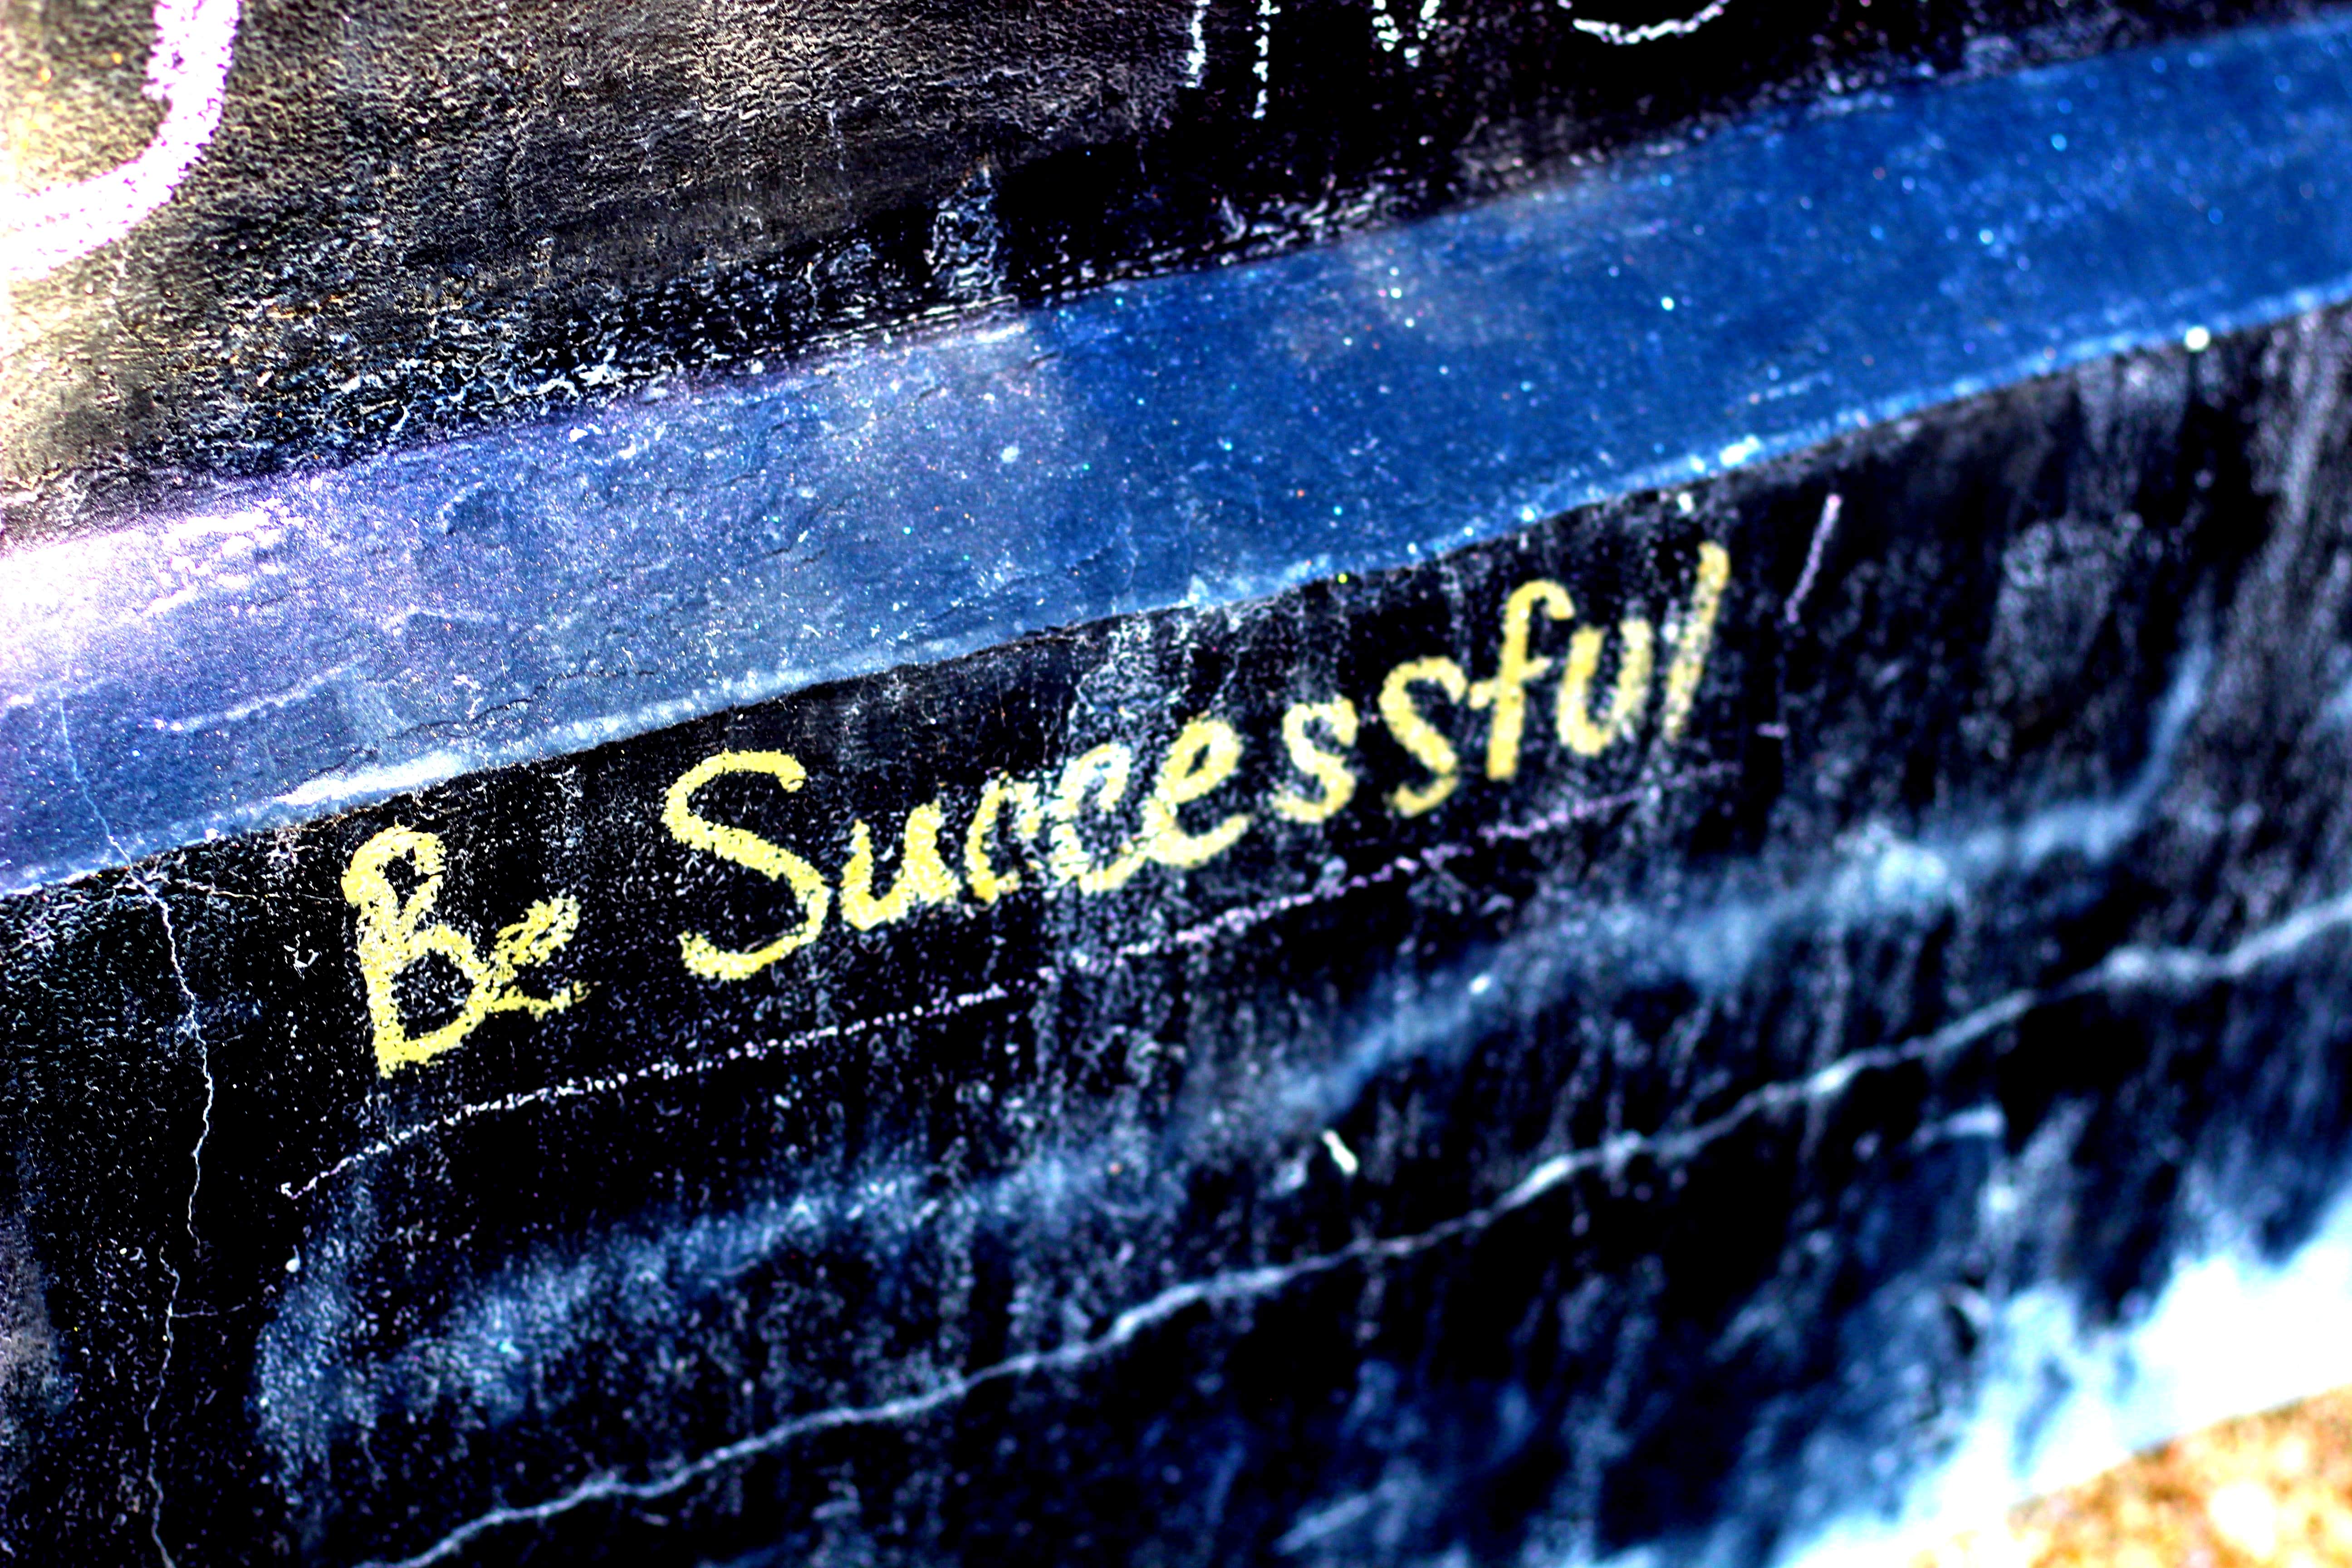 Be Successful